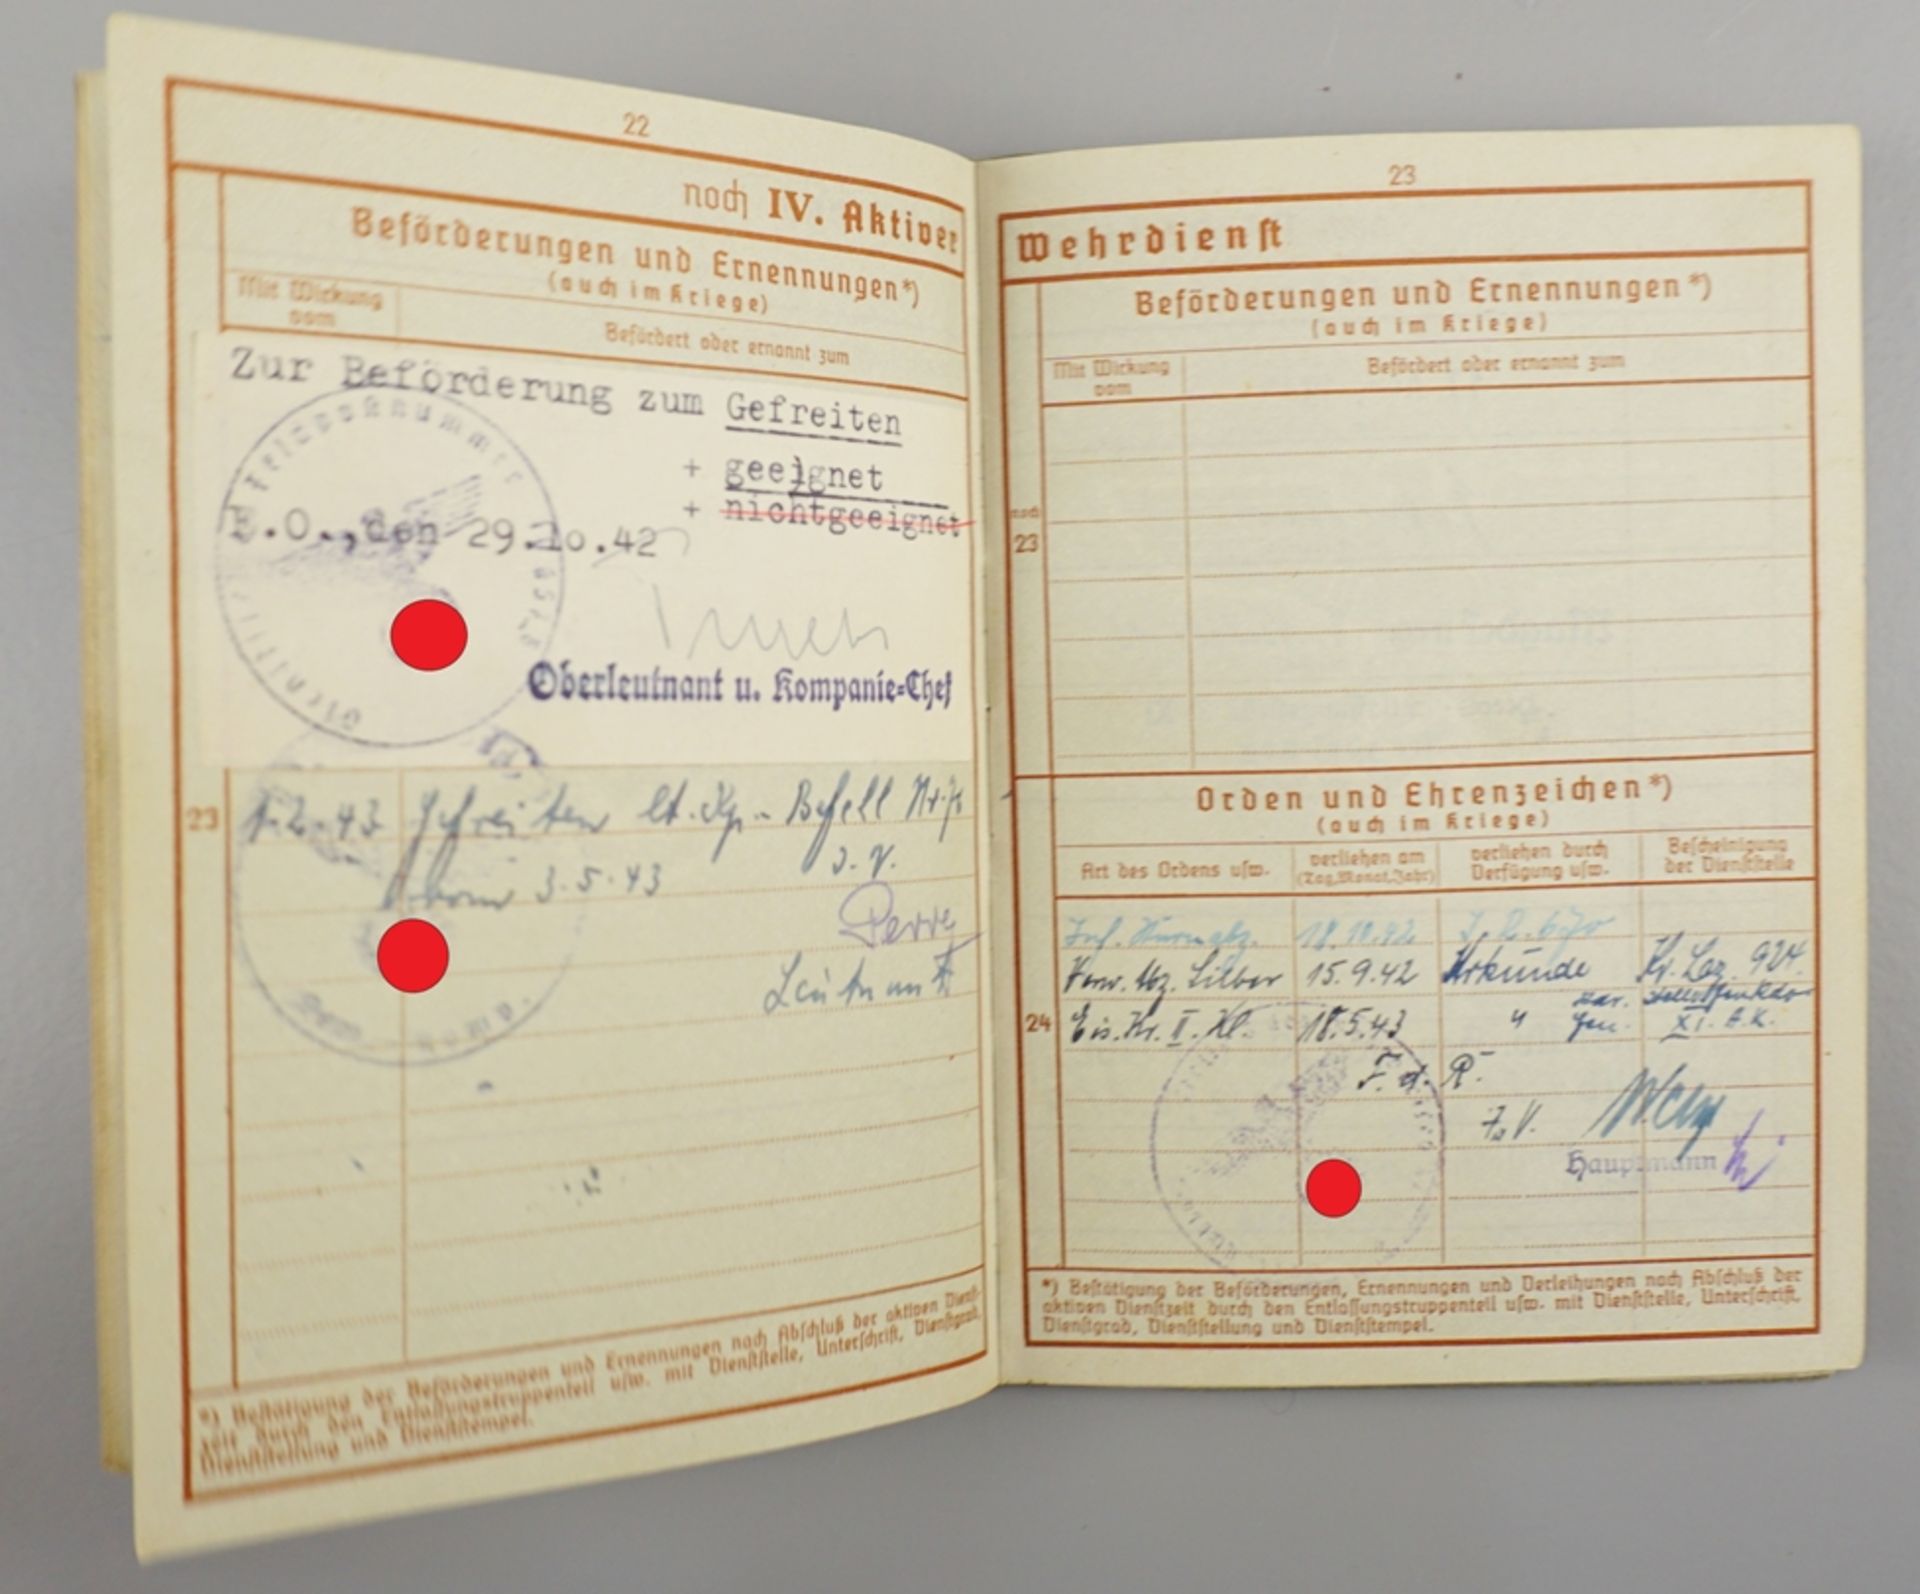 22
noch IV. Aktiver
Beförderungen und Ernennungen*)
(auch im Kriege)
Mit Wirkung
vom
Befördert oder ernannt zum
Zur Beförderung zum Gefreiten
+ geeignet
+ nichtgeeignet
O.,den 29.10.42
Oberleutnant u. Kompanie=Chef
23
1.2.43 Gefreiten lt. Kp.- Befehl Nr.
vom 3.5.43
Leutnant
*) Bestätigung der Beförderungen und Ernennungen nach Abschluß der aktiven Dienst-
zeit durch den Entlassungstruppenteil usw. mit Dienststelle, Unterschrift, Dienstgrad,
Dienststellung und Dienststempel.
23
Wehrdienst
Beförderungen und Ernennungen*)
(auch im Kriege)
Mit Wirkung
vom
Befördert oder ernannt zum
noch
23
Orden und Ehrenzeichen*)
(auch im Kriege)
Art des Ordens usw.
verliehen am
(Tag, Monat, Jahr)
verliehen durch
Verfügung usw.
Bescheinigung
der Dienststelle
Inf. Sturmabz. 18.10.42 I.R. 670
Verw. Abz. Silber 15.9.42 Urkunde Kr. Laz. 924.
24
Eis. Kr. II. Kl. 18.5.43 " Gen. XI. A.K.
F. d. R.
Hauptmann
*) Bestätigung der Beförderungen, Ernennungen und Verleihungen nach Abschluß der
aktiven Dienstzeit durch den Entlassungstruppenteil usw. mit Dienststelle, Unterschrift,
Dienstgrad, Dienststellung und Dienststempel.